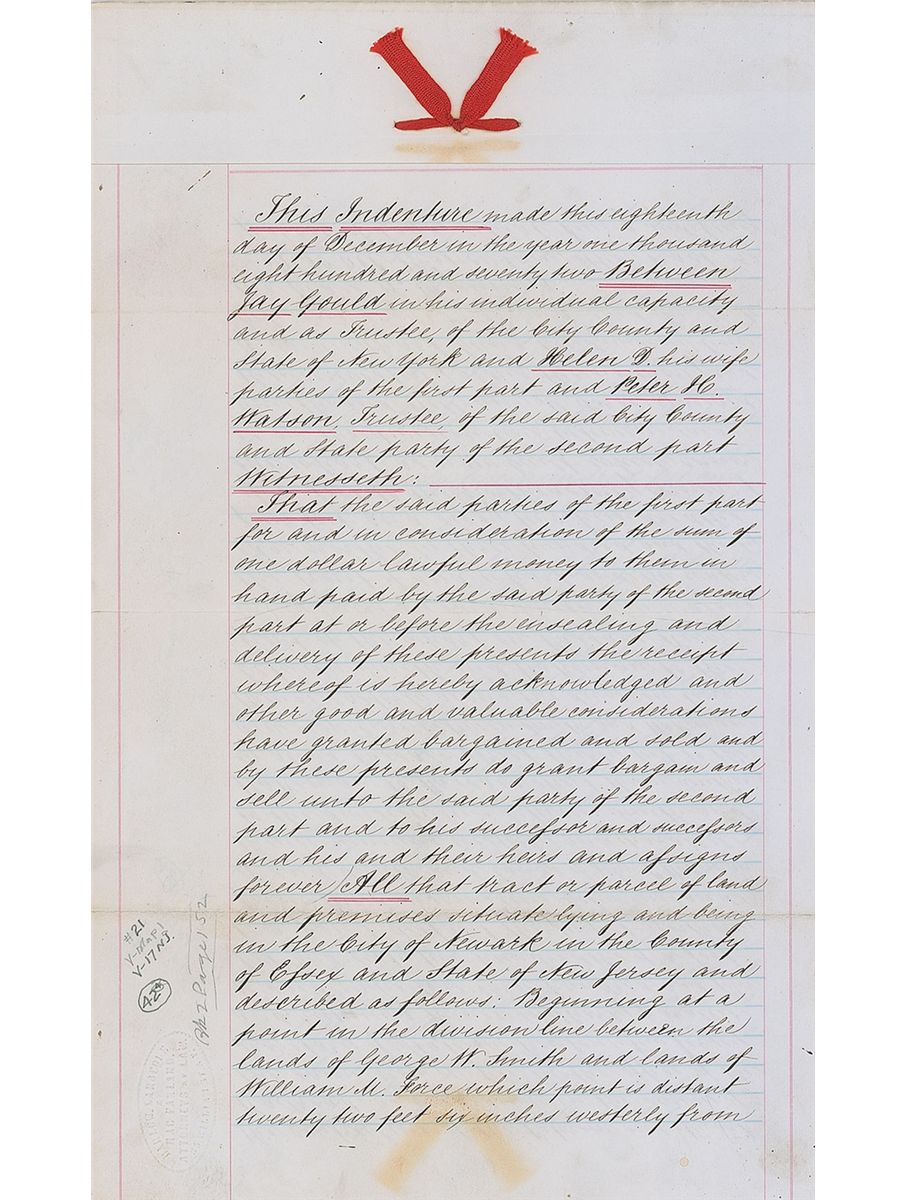 This Indenture made this eighteenth
day of December in the year one thousand
eight hundred and seventy two Between
Jay Gould in his individual capacity
and as Trustee, of the City County and
State of New York and Helen D. his wife
parties of the first part and Peter H.
Watson, Trustee, of the said City County
and State party of the second part
Witnesseth:
That the said parties of the first part
for and in consideration of the sum of
one dollar lawful money to them in
hand paid by the said party of the second
part at or before the ensealing and
delivery of these presents the receipt
whereof is hereby acknowledged and
other good and valuable considerations
have granted bargained and sold and
by these presents do grant bargain and
sell unto the said party of the second
part and to his successor and successors
and his and their heirs and assigns
forever All that tract or parcel of land
and premises situate lying and being
in the City of Newark in the County
of Essex and State of New Jersey and
described as follows: Beginning at a
point in the division line between the
lands of George W. Smith and lands of
William M. Force which point is distant
twenty two feet six inches westerly from
#21
V-Map 1
V-17 NJ
Page 152